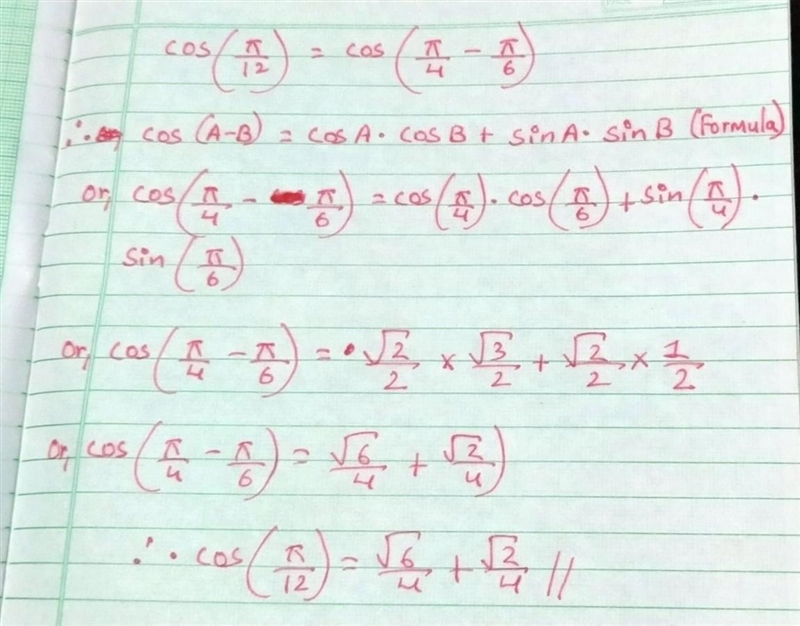 cos(π/12) = cos(π/4 - π/6)
∴ cos (A-B) = cosA · cosB + sinA · sinB (Formula)
or, cos(π/4 - π/6) = cos(π/4) · cos(π/6) + sin(π/4) ·
sin(π/6)
or, cos(π/4 - π/6) = √2/2 × √3/2 + √2/2 × 1/2
or, cos(π/4 - π/6) = √6/4 + √2/4)
∴ cos(π/12) = √6/4 + √2/4 //